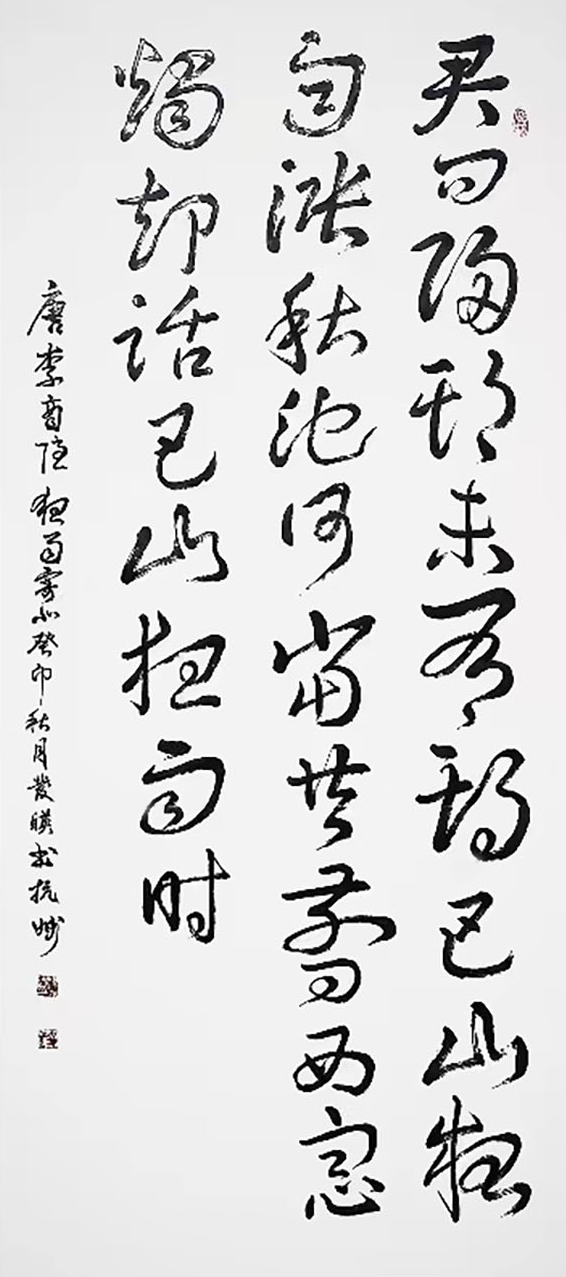 君问歸期未有期巴山夜
雨漲秋池何當共剪西窗
燭却话巴山夜雨时
唐李商隱夜雨寄北癸卯秋月發暎书杭州